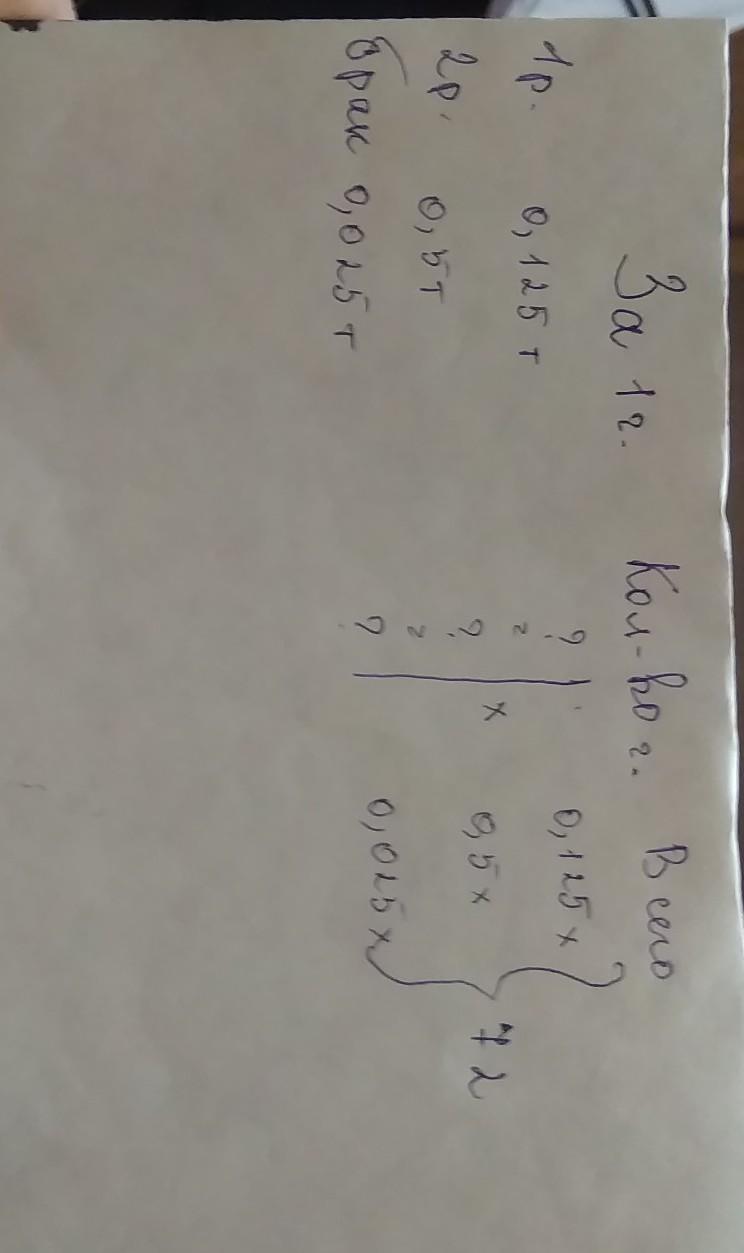 За 1 г. Кол-во г. Всего
1р. 0,125 т ? 0,125 x
=
2р. 0,5т ? x 0,5 x 72
=
брак 0,025 т ? 0,025 x